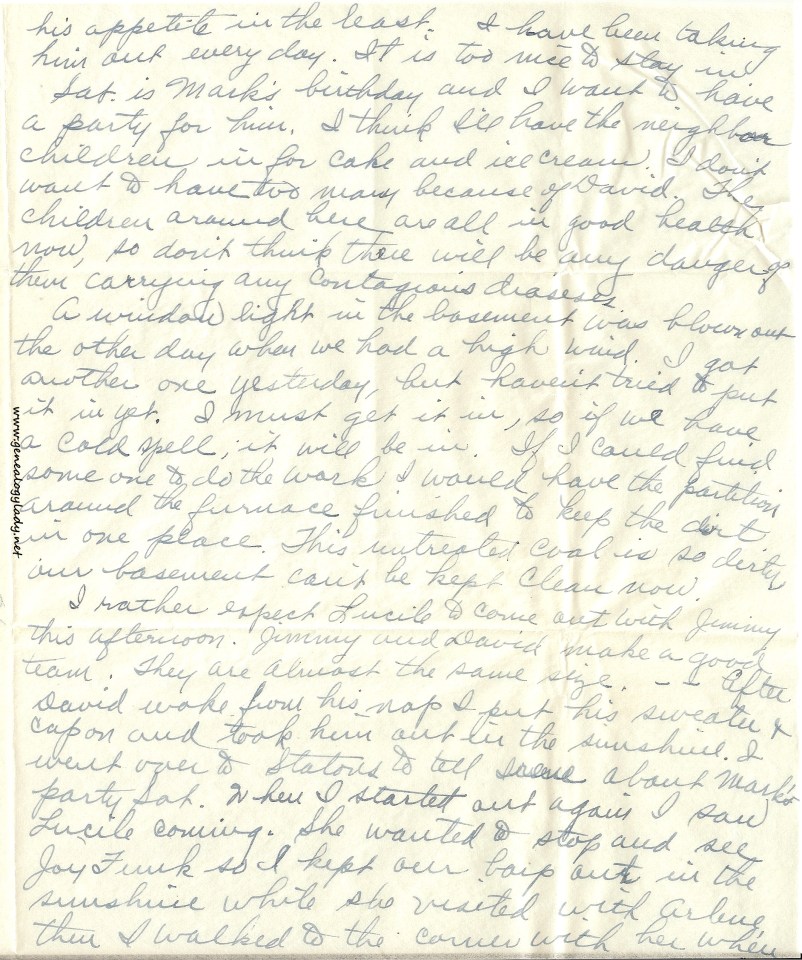 his appetite in the least. I have been taking
him out every day. It is too nice to stay in
Sat. is Mark's birthday and I want to have
a party for him. I think I'll have the neighbor
children in for cake and ice cream. I don't
want to have too many because of David. The
children around here are all in good health
now, so don't think there will be any danger of
them carrying any contagious diseases.
A window light in the basement was blown out
the other day when we had a high wind. I got
another one yesterday, but haven't tried to put
it in yet. I must get it in, so if we have
a cold spell, it will be in. If I could find
some one to do the work I would have the partition
around the furnace finished to keep the dirt
in one place. This untreated coal is so dirty
our basement can't be kept clean now.
I rather expect Lucile to come out with Jimmy
this afternoon. Jimmy and David make a good
team. They are almost the same size. -- After
David woke from his nap I put his sweater &
cap on and took him out in the sunshine. I
went over to Statons to tell about Mark's
party Sat. When I started out again I saw
Lucile coming. She wanted to stop and see
Joy Funk so I kept our out in the
sunshine while she visited with Arlene
then I walked to the corner with her when
www.genealogylady.net